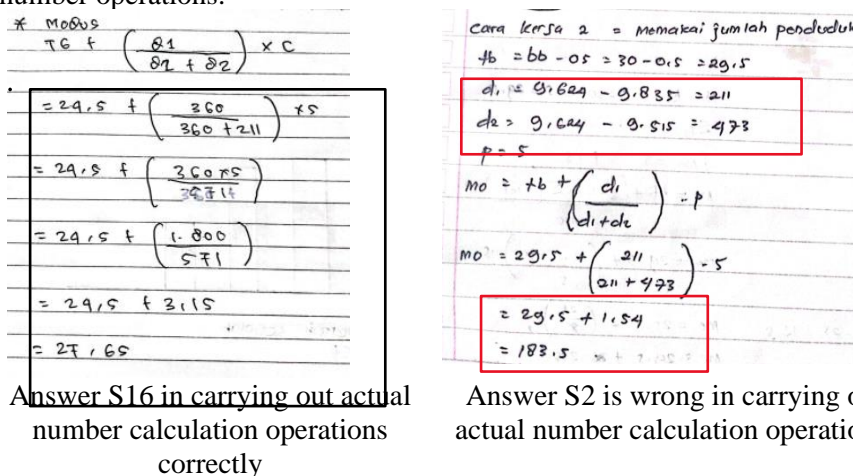 number operations.
* MODUS
TG + ( ∂1 / ∂1 + ∂2 ) x C
= 24,5 + ( 360 / 360 + 211 ) x5
= 24,5 + ( 360x5 / )
= 24,5 + ( 1.800 / 571 )
= 24,5 + 3,15
= 27,65
Answer S16 in carrying out actual
number calculation operations
correctly
cara kerja 2 = memakai jumlah penduduk
tb = bb - 0,5 = 30 - 0,5 = 29,5
d1 = 9.624 - 9.835 = 211
d2 = 9.624 - 9.515 = 473
p = 5
mo = tb + ( d1 / d1+d2 ) . p
mo = 29,5 + ( 211 / 211 + 473 ) . 5
= 29,5 + 1,54
= 183,5
Answer S2 is wrong in carrying
actual number calculation